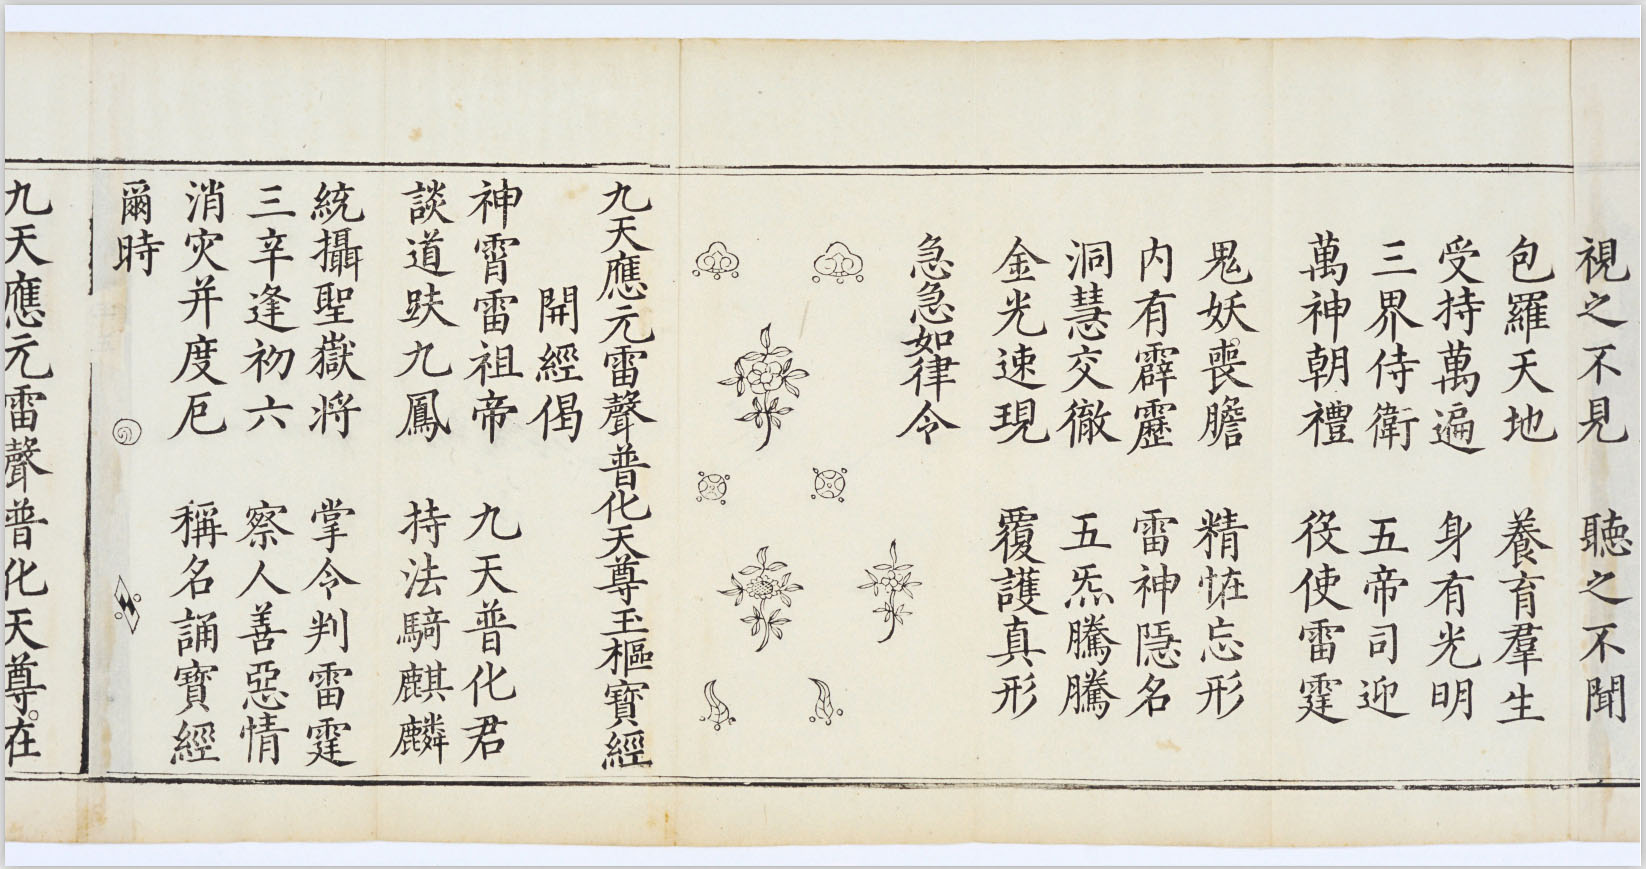 視之不見 聽之不聞
包羅天地 養育羣生
受持萬遍 身有光明
三界侍衛 五帝司迎
萬神朝禮 役使雷霆
鬼妖喪膽 精恠忘形
内有霹靂 雷神隱名
洞慧交徹 五炁騰騰
金光速現 覆護真形
急急如律令
九天應元雷聲普化天尊玉樞寶經
開經偈
神霄雷祖帝 九天普化君
談道趺九鳳 持法騎麒麟
統攝聖嶽將 掌令判雷霆
三辛逢初六 察人善惡情
消灾并度厄 稱名誦寶經
爾時
九天應元雷聲普化天尊。在